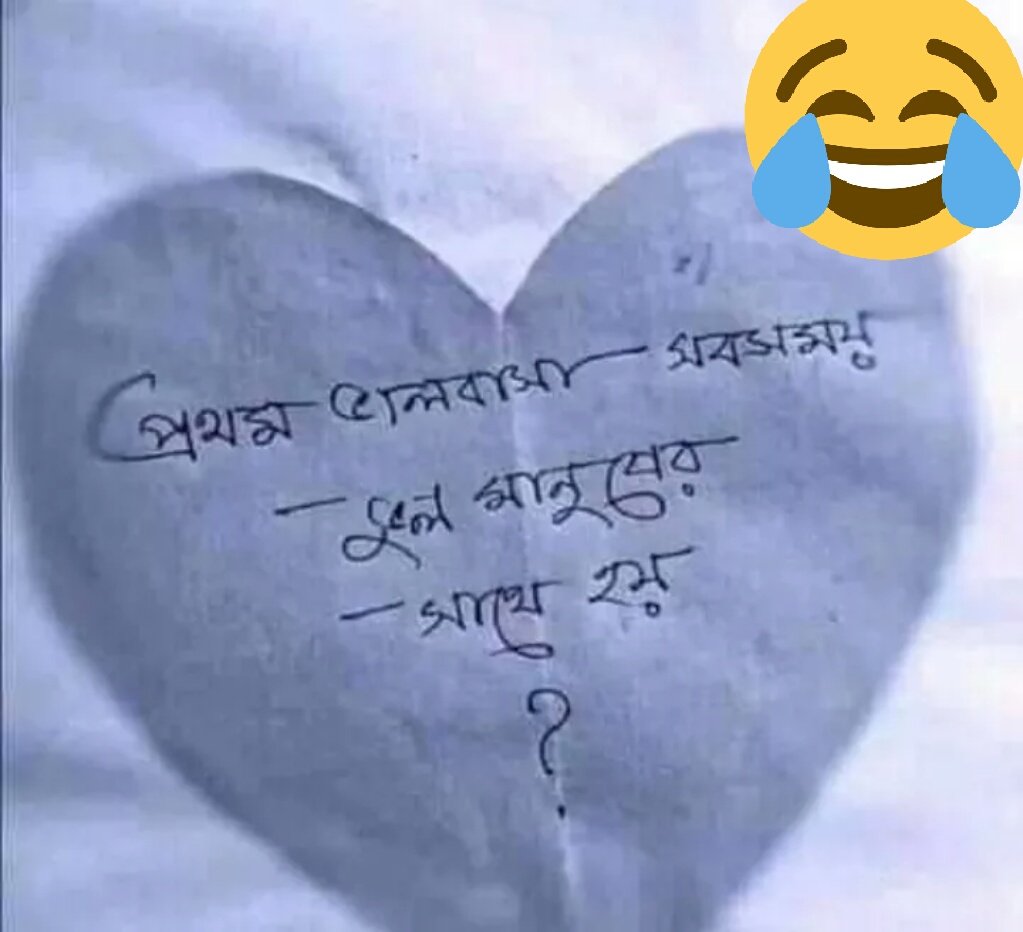 প্রথম ভালবাসা সবসময়
- ভুল মানুষের
- সাথে হয়
?